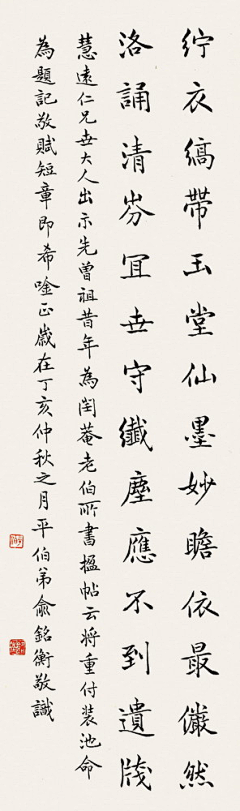 紵衣縞帶玉堂仙墨妙瞻依最儼然
洛誦清芬冝世守纖塵應不到遺牋
慧遠仁兄世大人出示先曾祖昔年為閏菴老伯所書楹帖云將重付裝池命
為題記敬賦短章即希唫正歲在丁亥仲秋之月平伯弟俞銘衡敬識